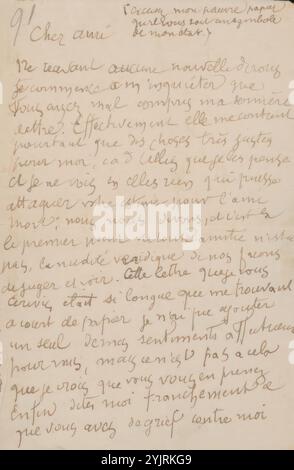 91
(Excusez mon pauvre papier
qu'il vous soit un symbole
de mon état.)
Cher ami
Ne recevant aucune nouvelle de vous
je commence à m'inquiéter que
vous ayez mal compris ma dernière
lettre. Effectivement elle ne contenait
pourtant que des choses très justes
pour moi, c à d telles que je les pense
et je ne vois en elles rien qui puisse
attaquer votre pour l'ami
mort, nous vivons, et c'est là
le premier
pas, la nudité véridique de nos façons
de juger et voir. Cette lettre que je vous
écrivis était si longue que me trouvant
à court de papier je n'ai pu ajouter
un seul de mes sentiments affectueux
pour vous, mais ce n'est pas à cela
que je crois que vous vous en prenez
Enfin dites moi franchement ce
que vous avez de grief contre moi
alamy
Image ID: 2YJRKG9
www.alamy.com